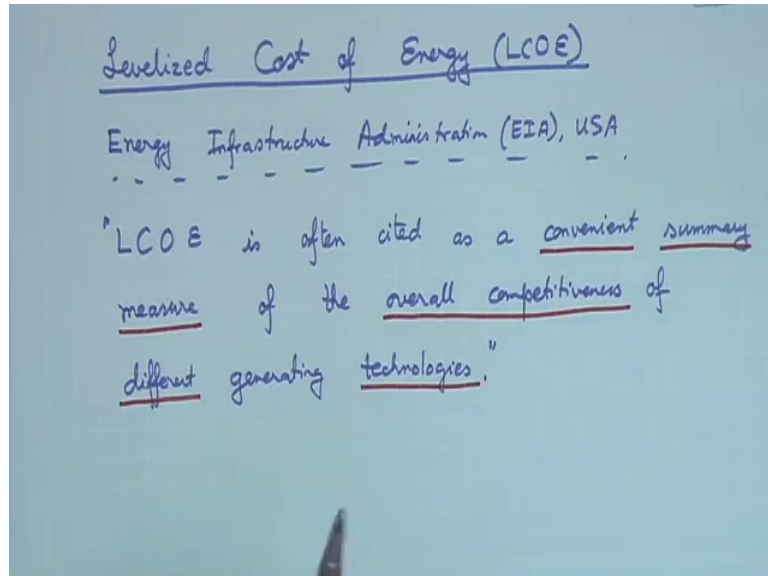 Levelized Cost of Energy (LCOE)
Energy Infrastructure Administration (EIA), USA
"LCOE is often cited as a convenient summary
measure of the overall competitiveness of
different generating technologies."